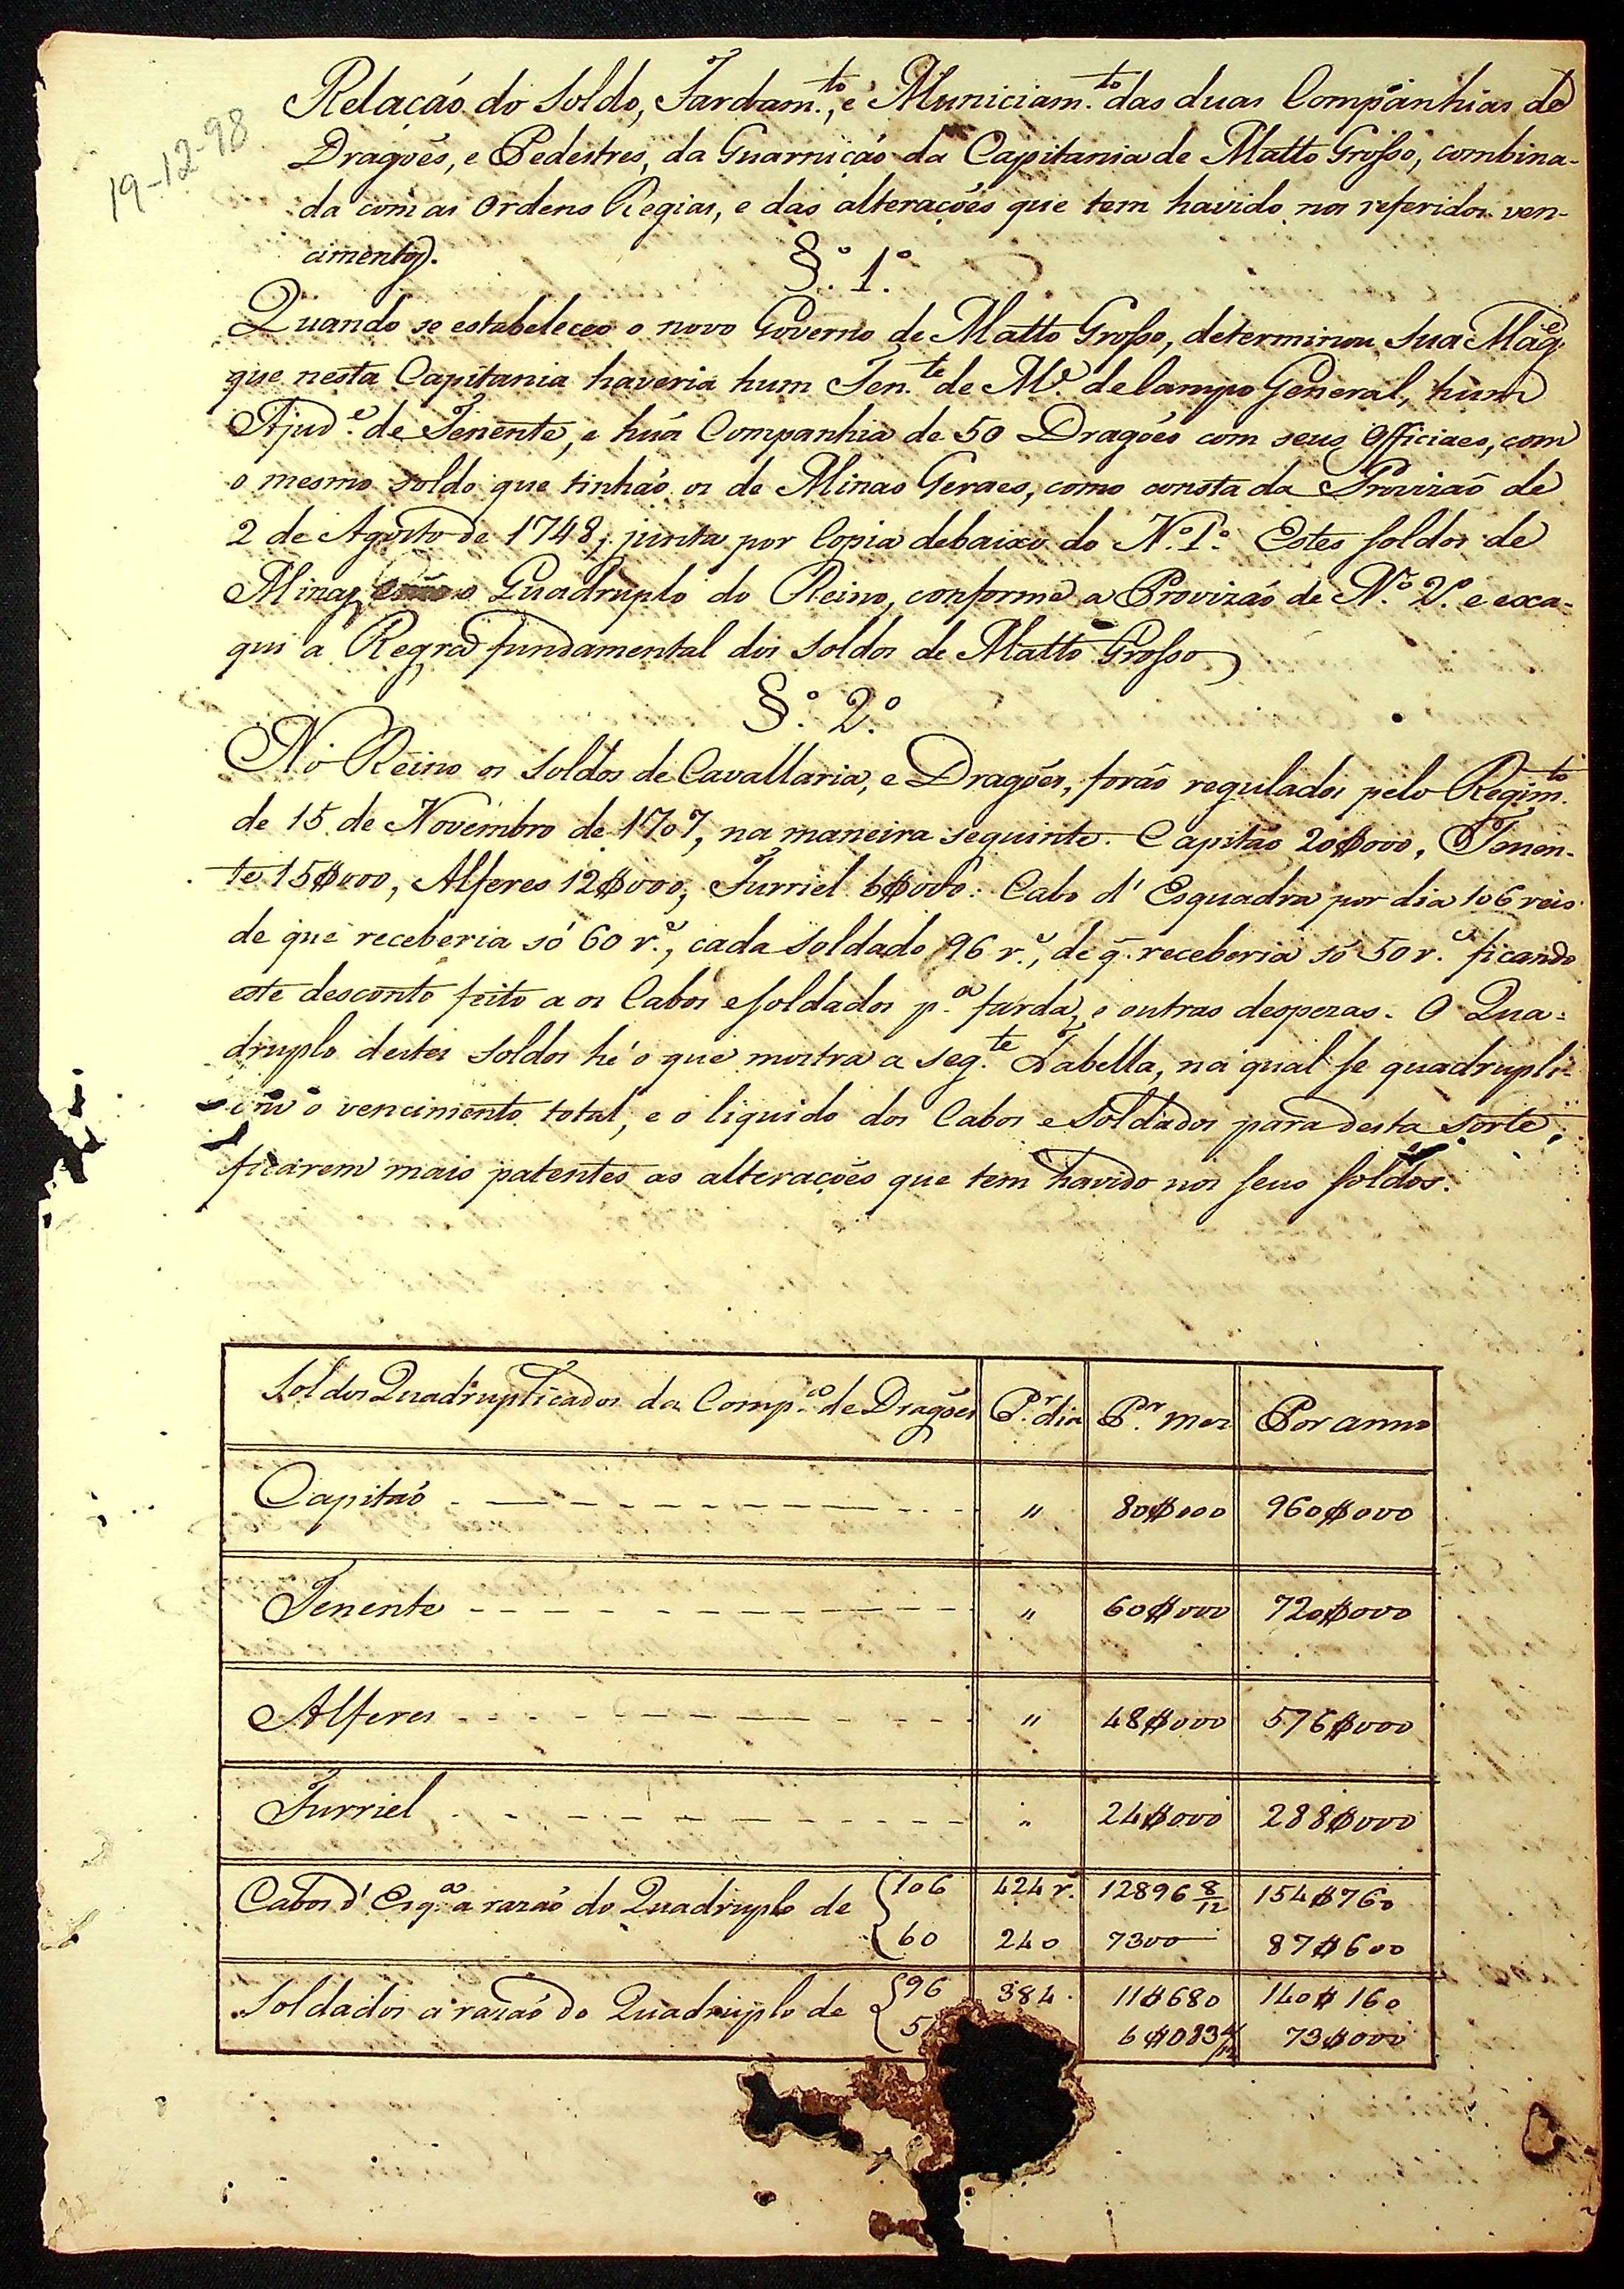 19-12-98
Relação do Soldo, Fardam.to, e Municiam.to das duas Companhias de
Dragoẽs, e Pedestres, da Guarnição da Capitania de Matto Grosso, combina-
da com as Ordens Regias, e das alteraçoẽs que tem havido nos referidos ven-
cimentos.
§.º 1.º
Quando se estabeleceo o novo Governo de Matto Grosso, determinou Sua Mag.e
que nesta Capitania haveria hum Ten.te de M.e de Campo General, hum
Ajud.e de Tenente, e huã Companhia de 50 Dragoẽs com seus Officiaes, com
o mesmo soldo que tinhão os de Minas Geraes, como consta da Provizão de
2 de Agosto de 1748, junta por Copia debaixo do N.º 1.º Estes soldos de
Minas o Quadruplo do Reino, conforme a Provizão de N.º 2.º e exa-
qui a Regra fundamental dos soldos de Matto Grosso
§.º 2.º
No Reino os soldos de Cavallaria, e Dragoẽs, forão regulados pelo Regim.to
de 15 de Novembro de 1707, na maneira seguinte. Capitão 20$000, Tenen-
te 15$000, Alferes 12$000, Furriel 6$000: Cabo d'Esquadra por dia 106 reis
de que receberia só 60 r.s, cada soldado 96 r.s, de q̃ receberia só 50 r.s ficando
este desconto feito a os Cabos e soldados p.a farda, e outras despezas. O Qua-
druplo destes soldos hé o que mostra a seg.te Tabella, na qual se quadrupli-
o vencimento total, e o liquido dos Cabos e Soldados para desta sorte,
ficarem mais patentes as alteraçoẽs que tem havido nos seus soldos.
Soldos Quadruplicados da Comp.a de Dragoẽs P.r dia P.r mez Por anno
Capitão " 80$000 960$000
Tenente " 60$000 720$000
Alferes " 48$000 576$000
Furriel " 24$000 288$000
Cabos d'Esq.a a razão do Quadruplo de { 106 424 r.s 12896 8/12 154$760
60 240 7300 87$600
Soldados a razão do Quadruplo de { 96 384 11$680 140$160
5 6$083 4/12 73$000